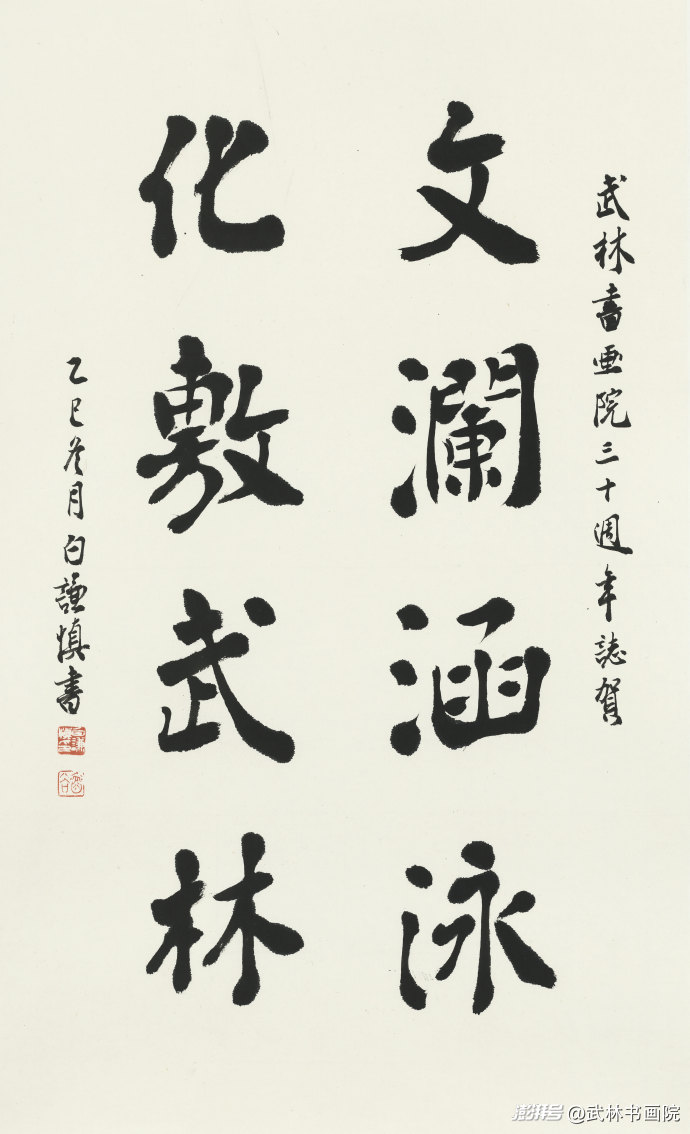 武林書画院三十週年誌賀
文瀾涵泳
化敷武林
乙巳冬月白謙慎書
澎湃号@武林书画院